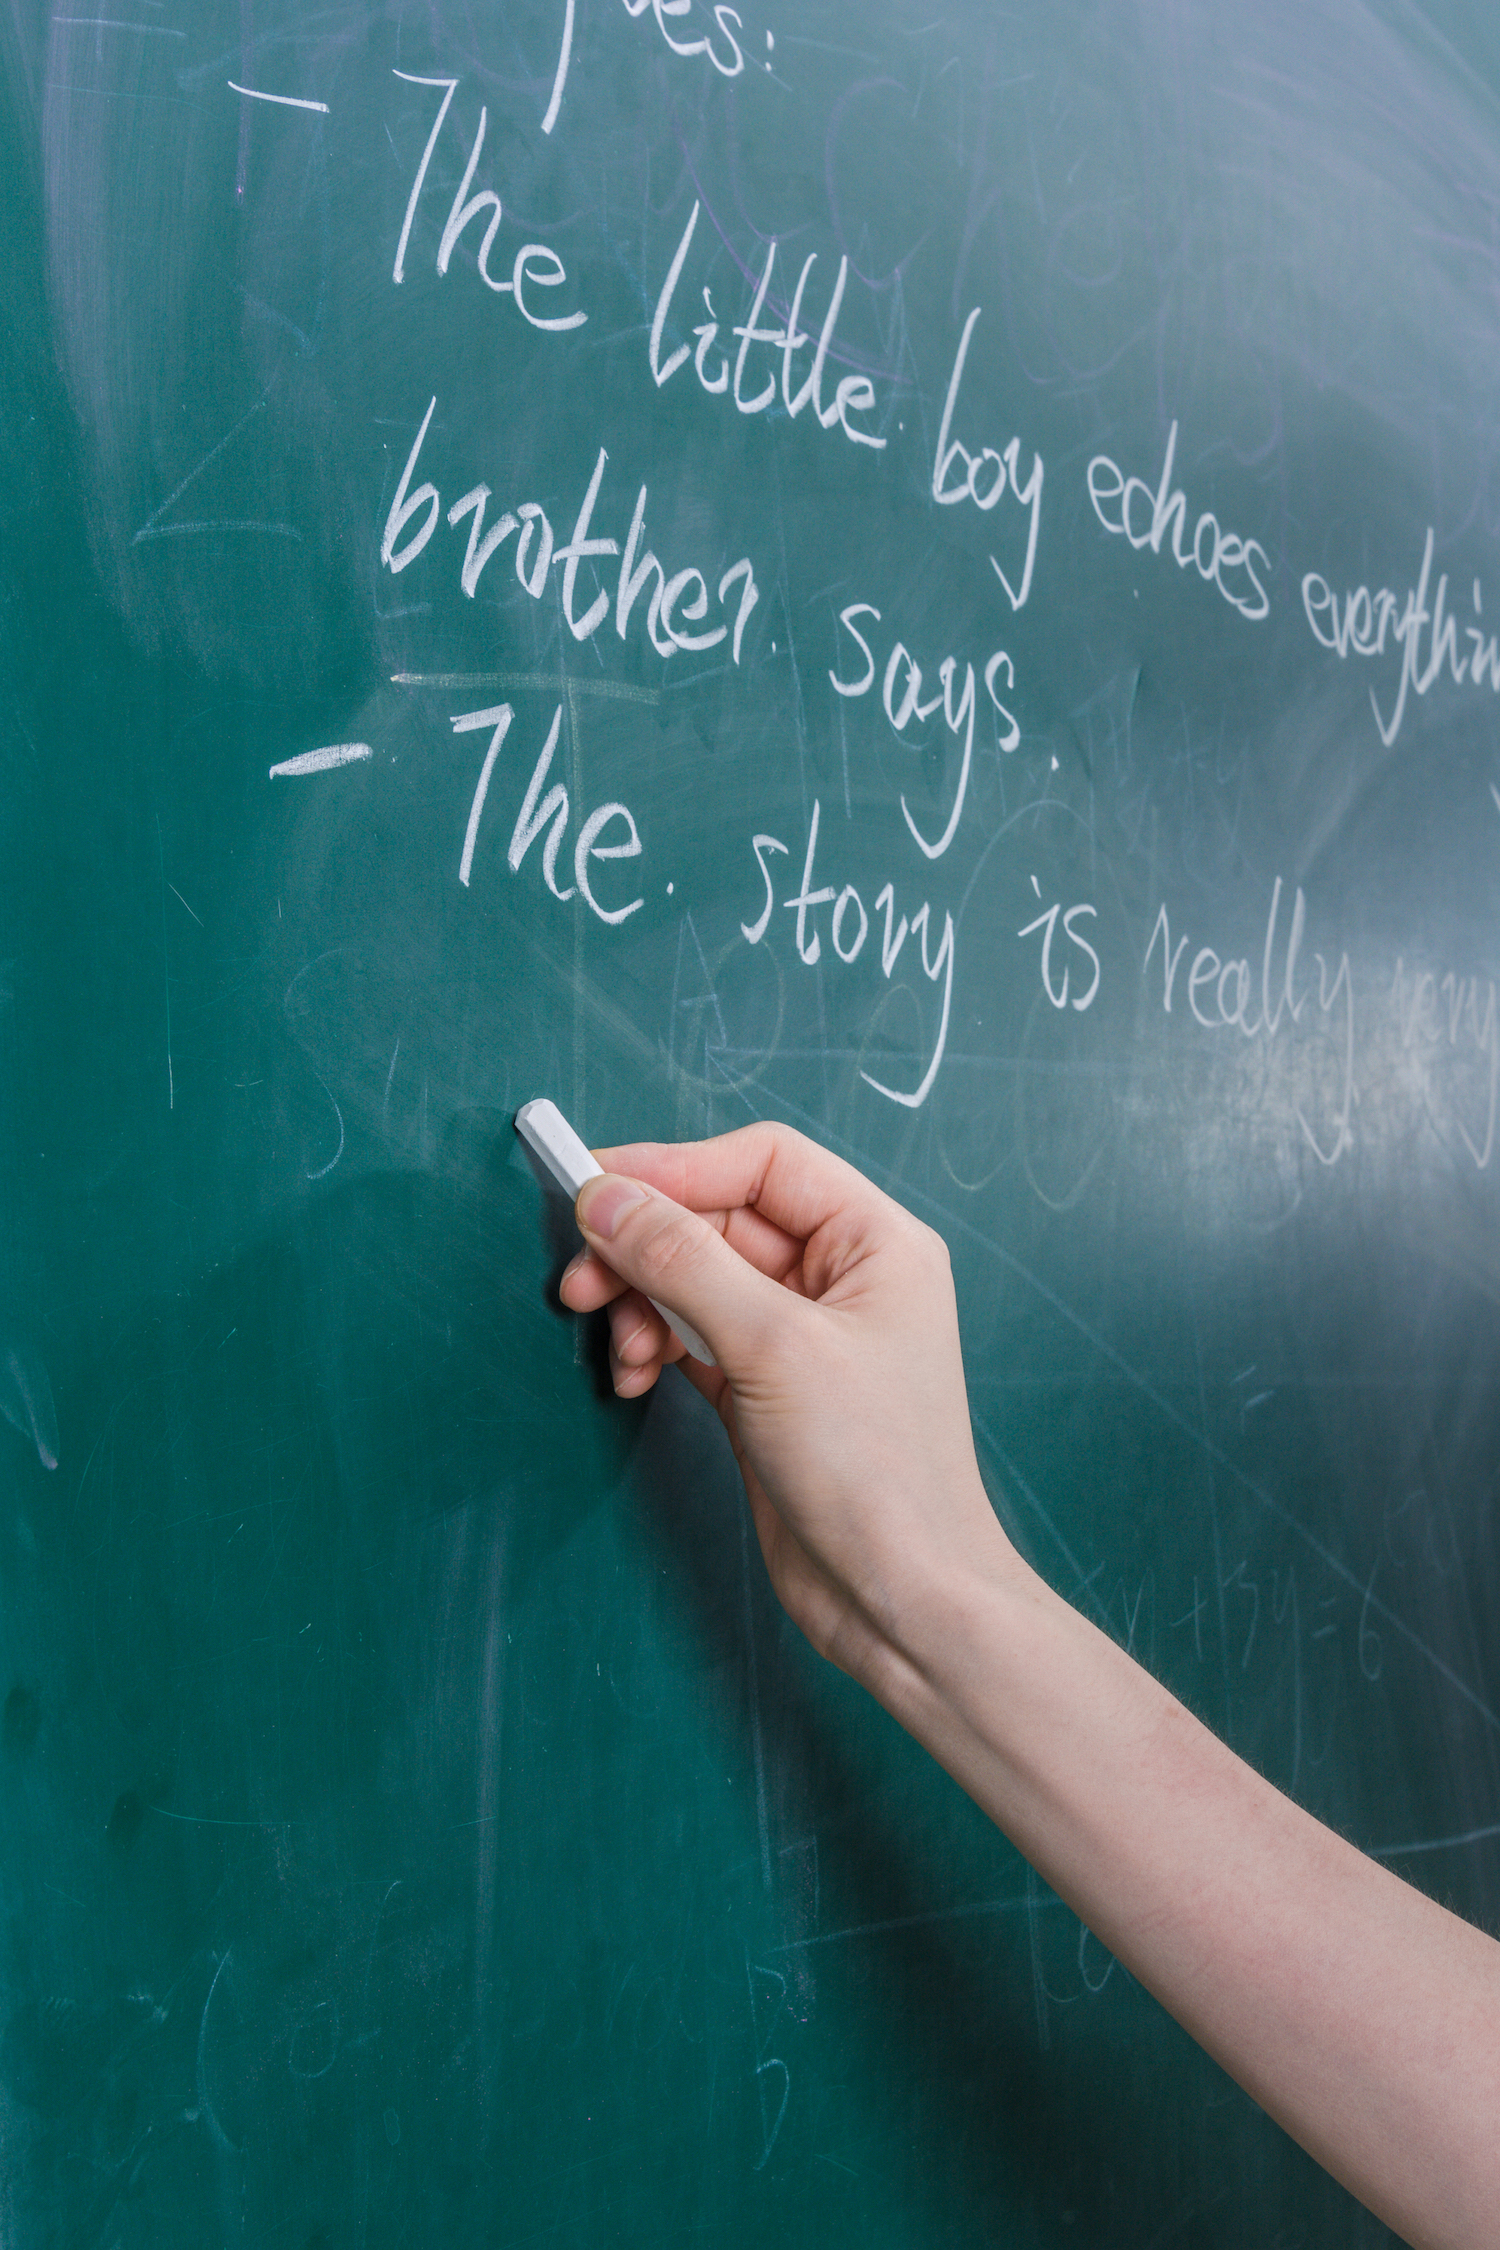 - The little boy echoes everythin
brother says.
- The story is really very